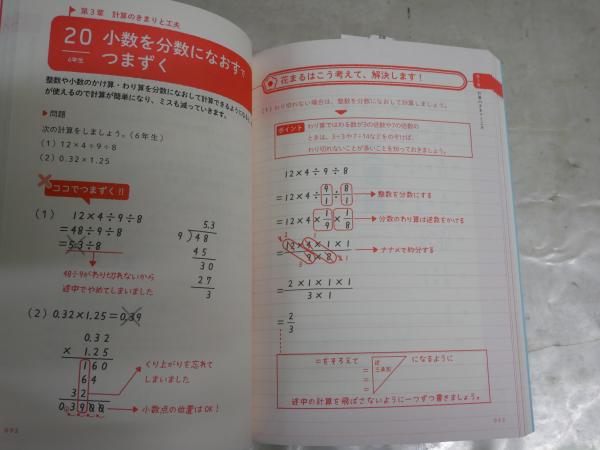 第3章 計算のきまりと工夫
20
6年生
小数を分数になおすで
つまずく
整数や小数のかけ算・わり算を分数になおして計算できるように
が使えるので計算が簡単になり、ミスも減っていきます。
▶問題
次の計算をしましょう。(6年生)
(1) 12×4÷9÷8
(2) 0.32×1.25
ココでつまずく!!
(1) 12×4÷9÷8
=48÷9÷8
=5.3÷8
48÷9がわり切れないから
途中でやめてしまいました
5.3
9)48
45
30
27
3
(2) 0.32×1.25=0.39
0.32
× 1.25
160
64
32
0.3900
くり上がりを忘れて
しまいました
小数点の位置はOK!
花まるはこう考えて、解決します!
(1) わり切れない場合は、整数を分数になおして計算しましょう。
ポイント
わり算ではわる数が3の倍数や7の倍数の
ときは、3÷3や7÷14などをのぞけば、
わり切れないことが多いことを知っておきましょう。
12×4÷9÷8
=12×4÷9/1÷8/1
整数を分数にする
=12×4×1/9×1/8
分数のわり算は逆数をかける
=12×4×1×1
9×8
ナナメで約分する
=2×1×1×1
3×1
=2
3
=をそろえて
逆
三角形
になるように
=
=
途中の計算を飛ばさないように一つずつ書きましょう。